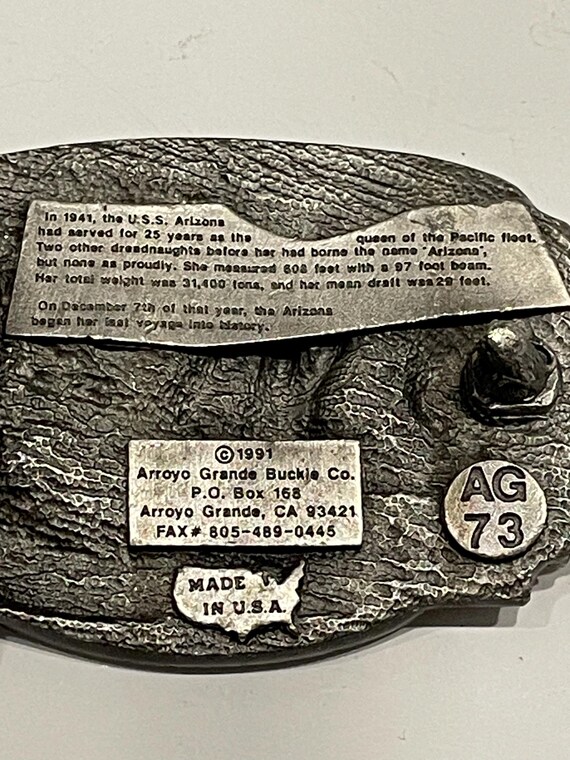 In 1941, the U.S.S. Arizona
had served for 25 years as the queen of the Pacific fleet.
Two other dreadnaughts before her had borne the name "Arizona",
but none as proudly. She measured 608 feet with a 97 foot beam.
Her total weight was 31,400 tons, and her mean draft was 29 feet.
On December 7th of that year, the Arizona
began her last voyage into history.
©1991
Arroyo Grande Buckle Co.
P.O. Box 168
Arroyo Grande, CA 93421
FAX# 805-489-0445
AG
73
MADE
IN U.S.A.